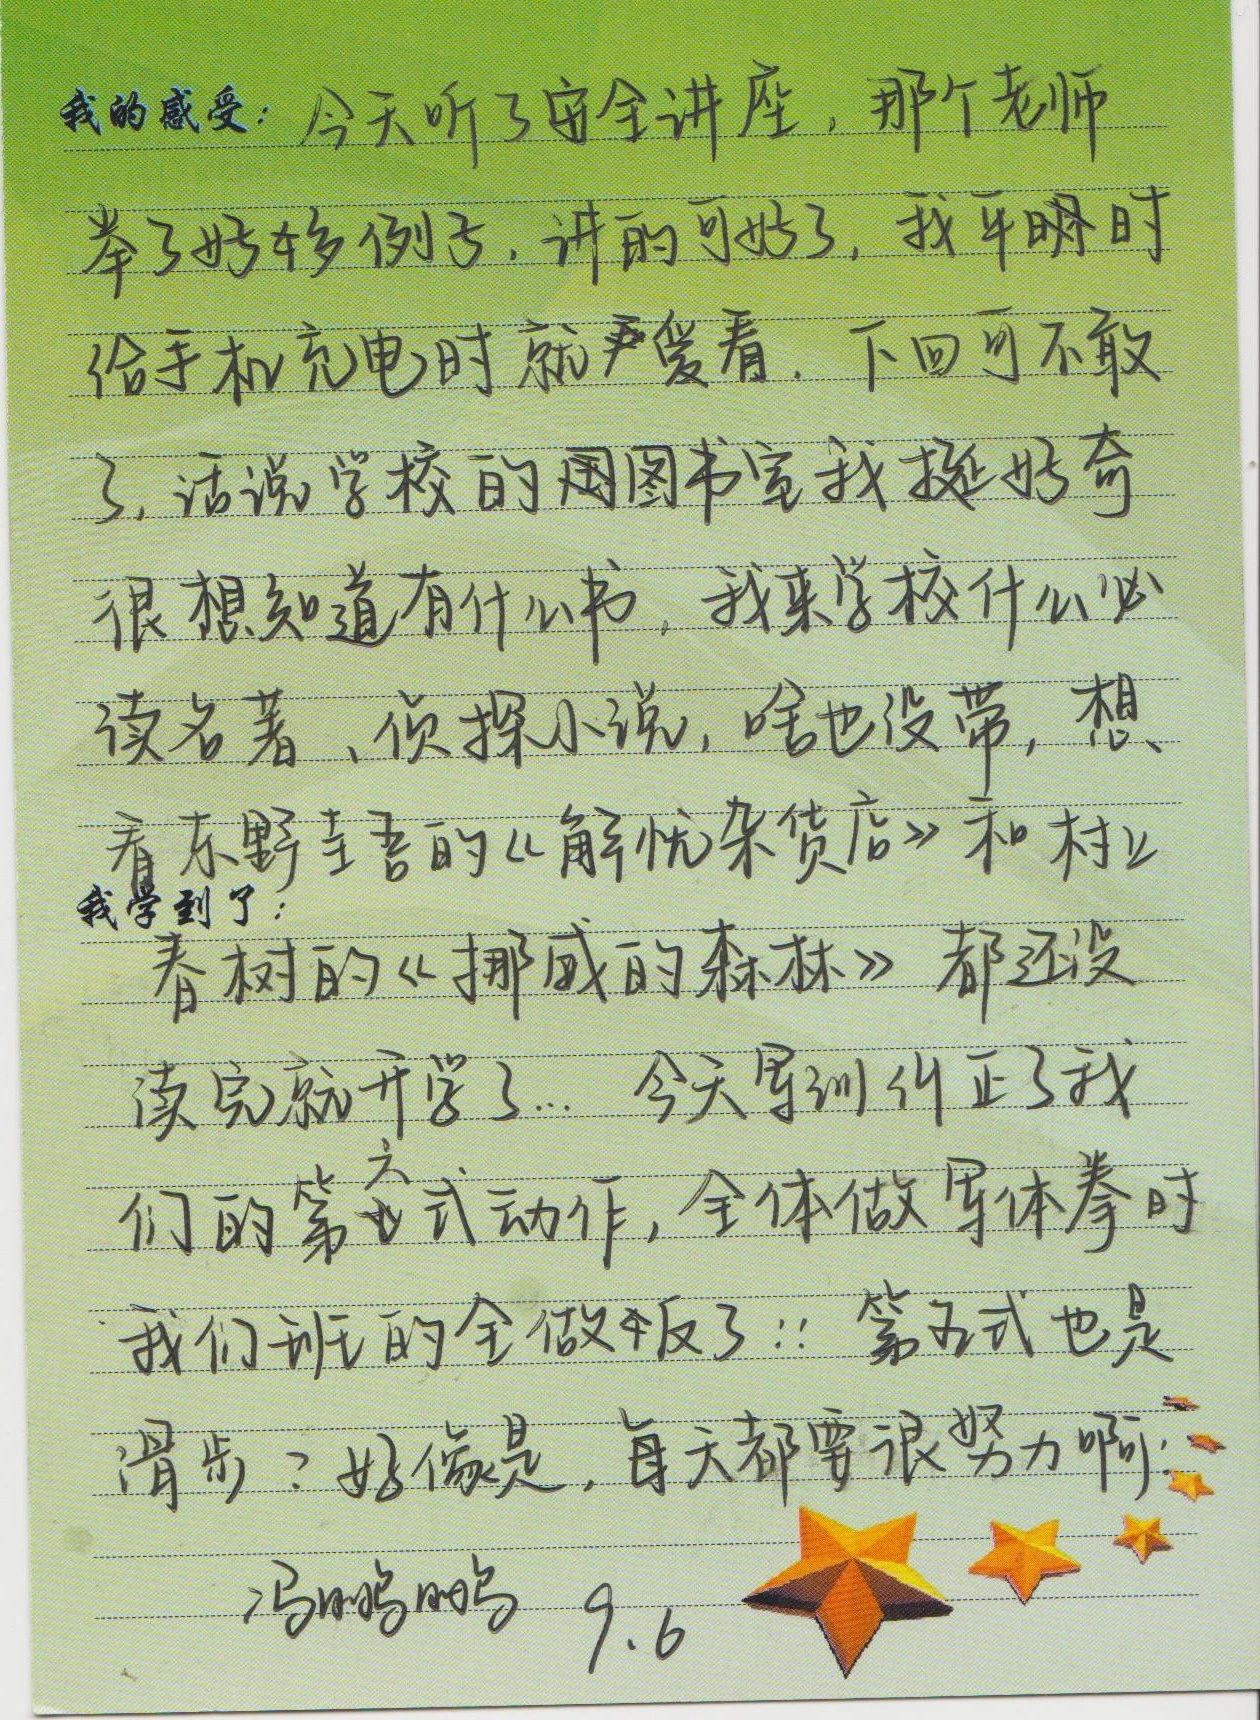 我的感受：今天听了安全讲座，那个老师
举了好多例子，讲的可好了，我平时
给手机充电时就爱看，下回可不敢
了，话说学校的图书室我挺好奇
很想知道有什么书，我来学校什么必
读名著、侦探小说，啥也没带，想
看东野圭吾的《解忧杂货店》和村上
我学到了：
春树的《挪威的森林》都还没
读完就开学了… 今天军训纠正了我
们的第六式动作，全体做军体拳时
我们班的全做板了!! 第五式也是
滑步？好像是，每天都要很努力啊!
冯鹏鹏 9.6